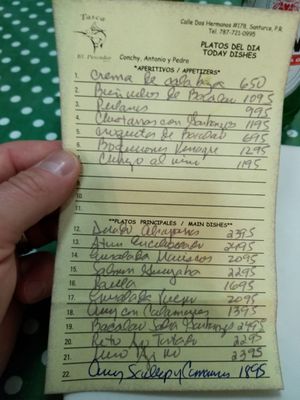 Tasca
El Pescador
Calle Dos Hermanos #178, Santurce, P.R.
Tel. 787-721-0995
PLATOS DEL DIA
TODAY DISHES
Conchy, Antonio y Pedro
*APERITIVOS / APPETIZERS*
1. Crema de calabaza 650
2. Buñuelos de Bacalao 1095
3. 995
4. 1195
5. Croquetas de Bacalao 695
6. Boquerones Vinagre 1295
7. Chorizo al vino 1195
8.
9.
10.
11.
**PLATOS PRINCIPALES / MAIN DISHES**
12. Dorado 2395
13. Atun Encebollado 2495
14. Ensalada Mariscos 2095
15. Salmon 2295
16. Paella 1695
17. Ensalada Pulpo 2095
18. Arroz con Calamares 1395
19. Bacalao Salsa 2495
20. 2295
21. 2395
22. Arroz Scallops y Camarones 1895